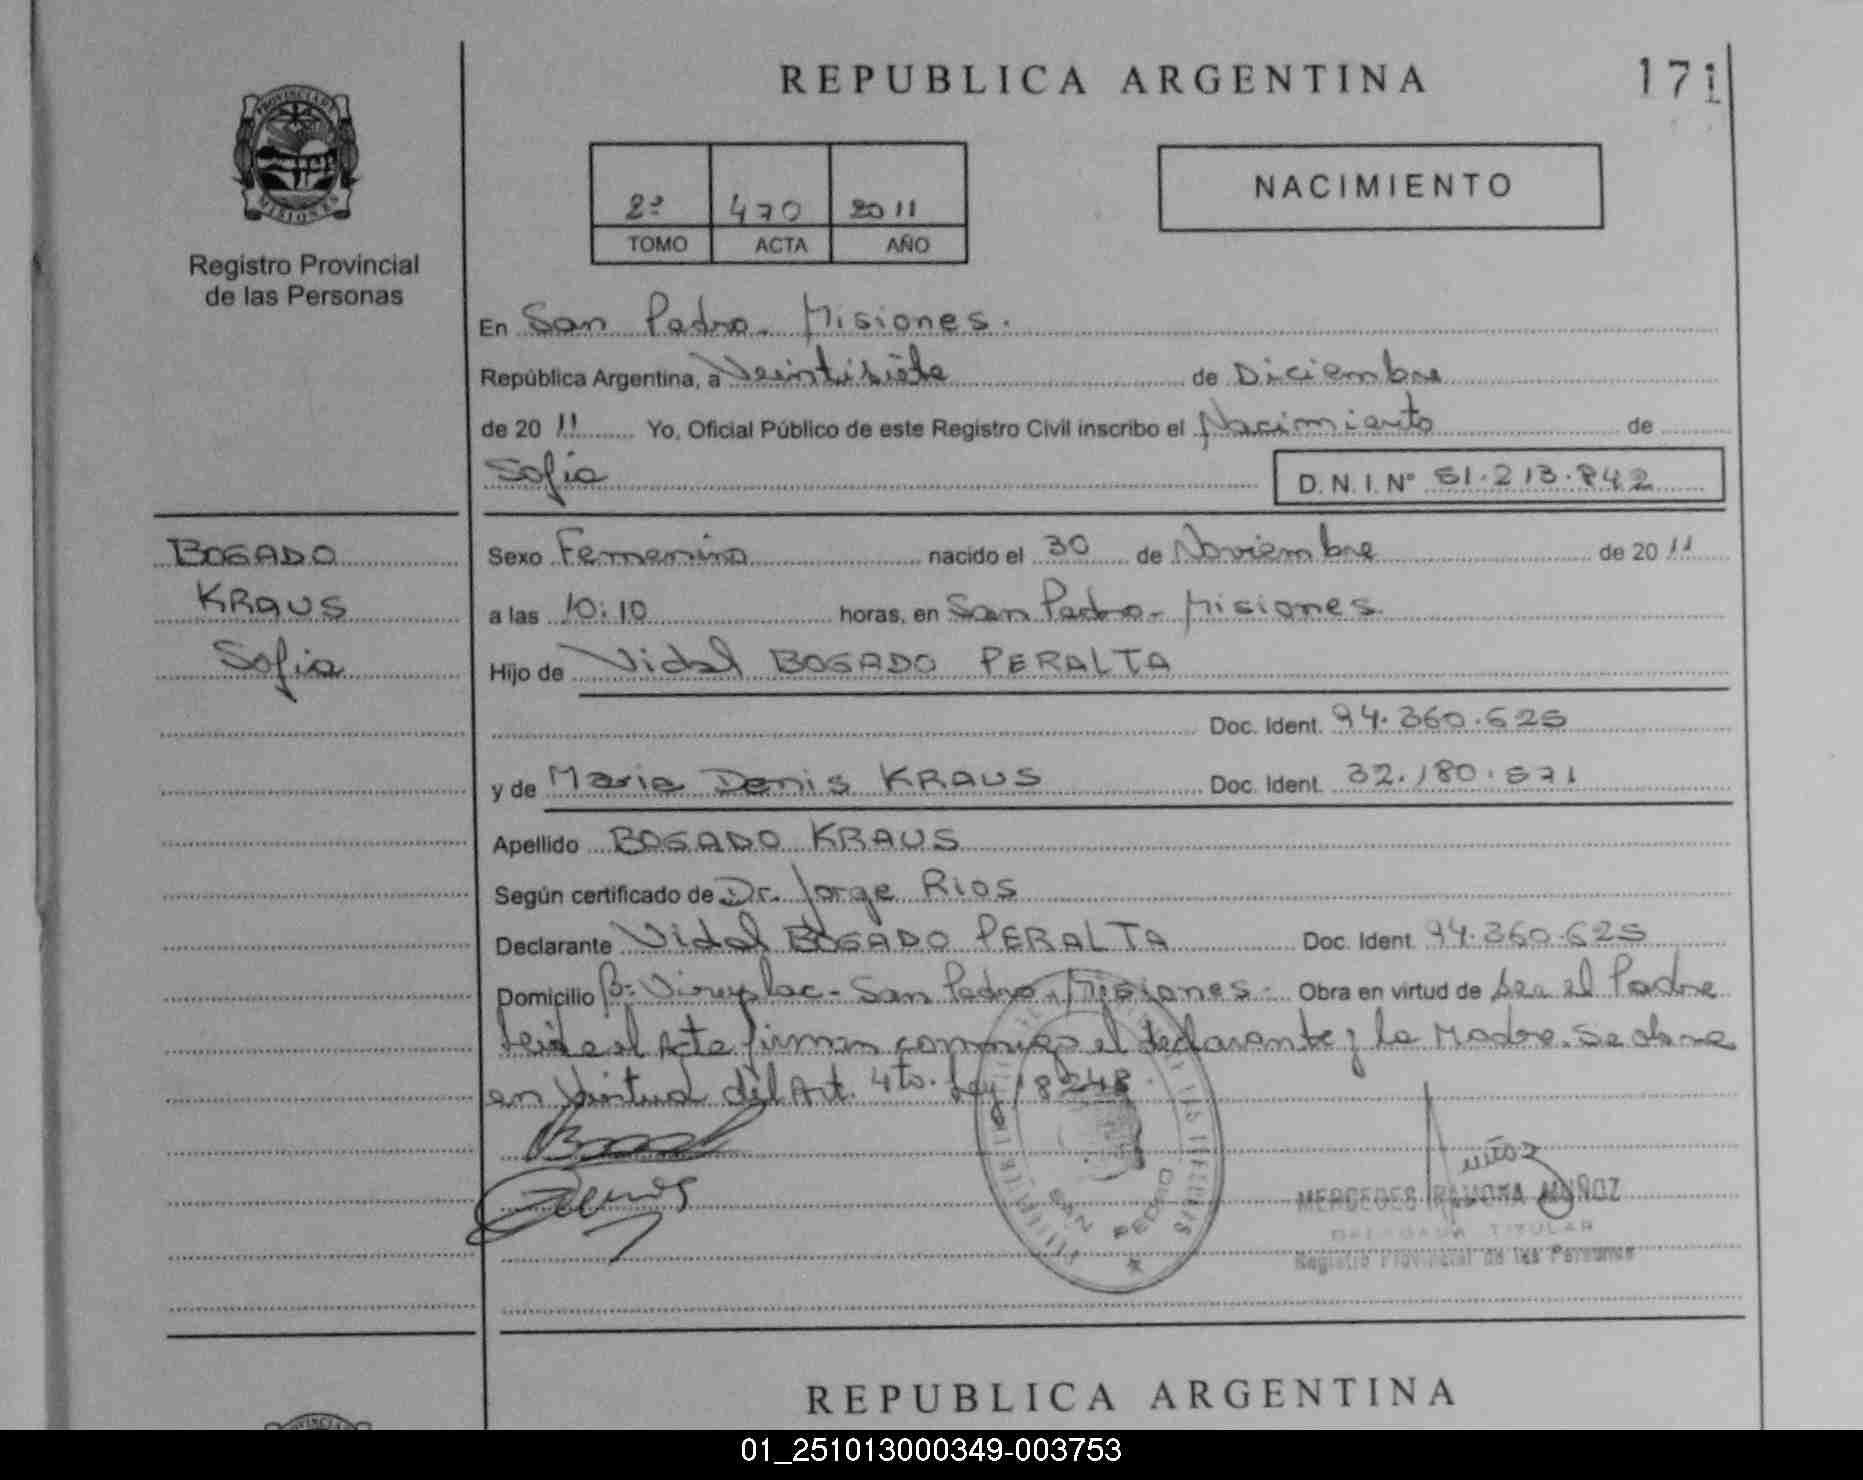 171
REPUBLICA ARGENTINA
PROVINCIA DE
MISIONES
Registro Provincial
de las Personas
2º 470 2011
TOMO ACTA AÑO
NACIMIENTO
En San Pedro - Misiones.
República Argentina, a Veintisiete de Diciembre
de 20 11 Yo, Oficial Público de este Registro Civil inscribo el Nacimiento de
Sofia
D. N. I. Nº 51.213.842
BOGADO
KRAUS
Sofia
Sexo Femenino nacido el 30 de Noviembre de 20 11
a las 10:10 horas, en San Pedro - Misiones.
Hijo de Vidal BOGADO PERALTA
Doc. Ident. 94.360.625
y de Maria Denis KRAUS Doc. Ident. 32.180.571
Apellido BOGADO KRAUS
Según certificado de Dr. Jorge Rios
Declarante Vidal BOGADO PERALTA Doc. Ident. 94.360.625
Domicilio Bº San Pedro - Misiones. Obra en virtud de ser el Padre
leida el Acta firman conmigo el declarante y la Madre. Se obra
en virtud del Art. 4to. Ley 18248.
Denis
SAN PEDRO
Muñoz
MERCEDES RAMONA MUÑOZ
DELEGADA TITULAR
Registro Provincial de las Personas
REPUBLICA ARGENTINA
01_251013000349-003753